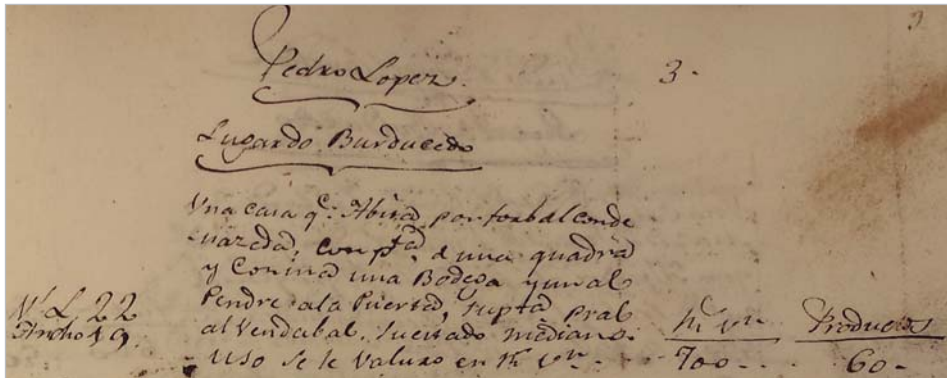 3
Pedro Lopez. 3.
Lugar do Burducedo
Una casa q.e Abita por foral conde
nazeda, con pta. d una quadra
y Cocina una Bodega y un al
Pendre ala Puerta, su pta. pral
al Vendabal. su estado mediano.
Uso Se le Valuzo en Rs. Vn.
Ml. L 22
Ancho 19
Rs. Vn. Productos
700 -- 60 -